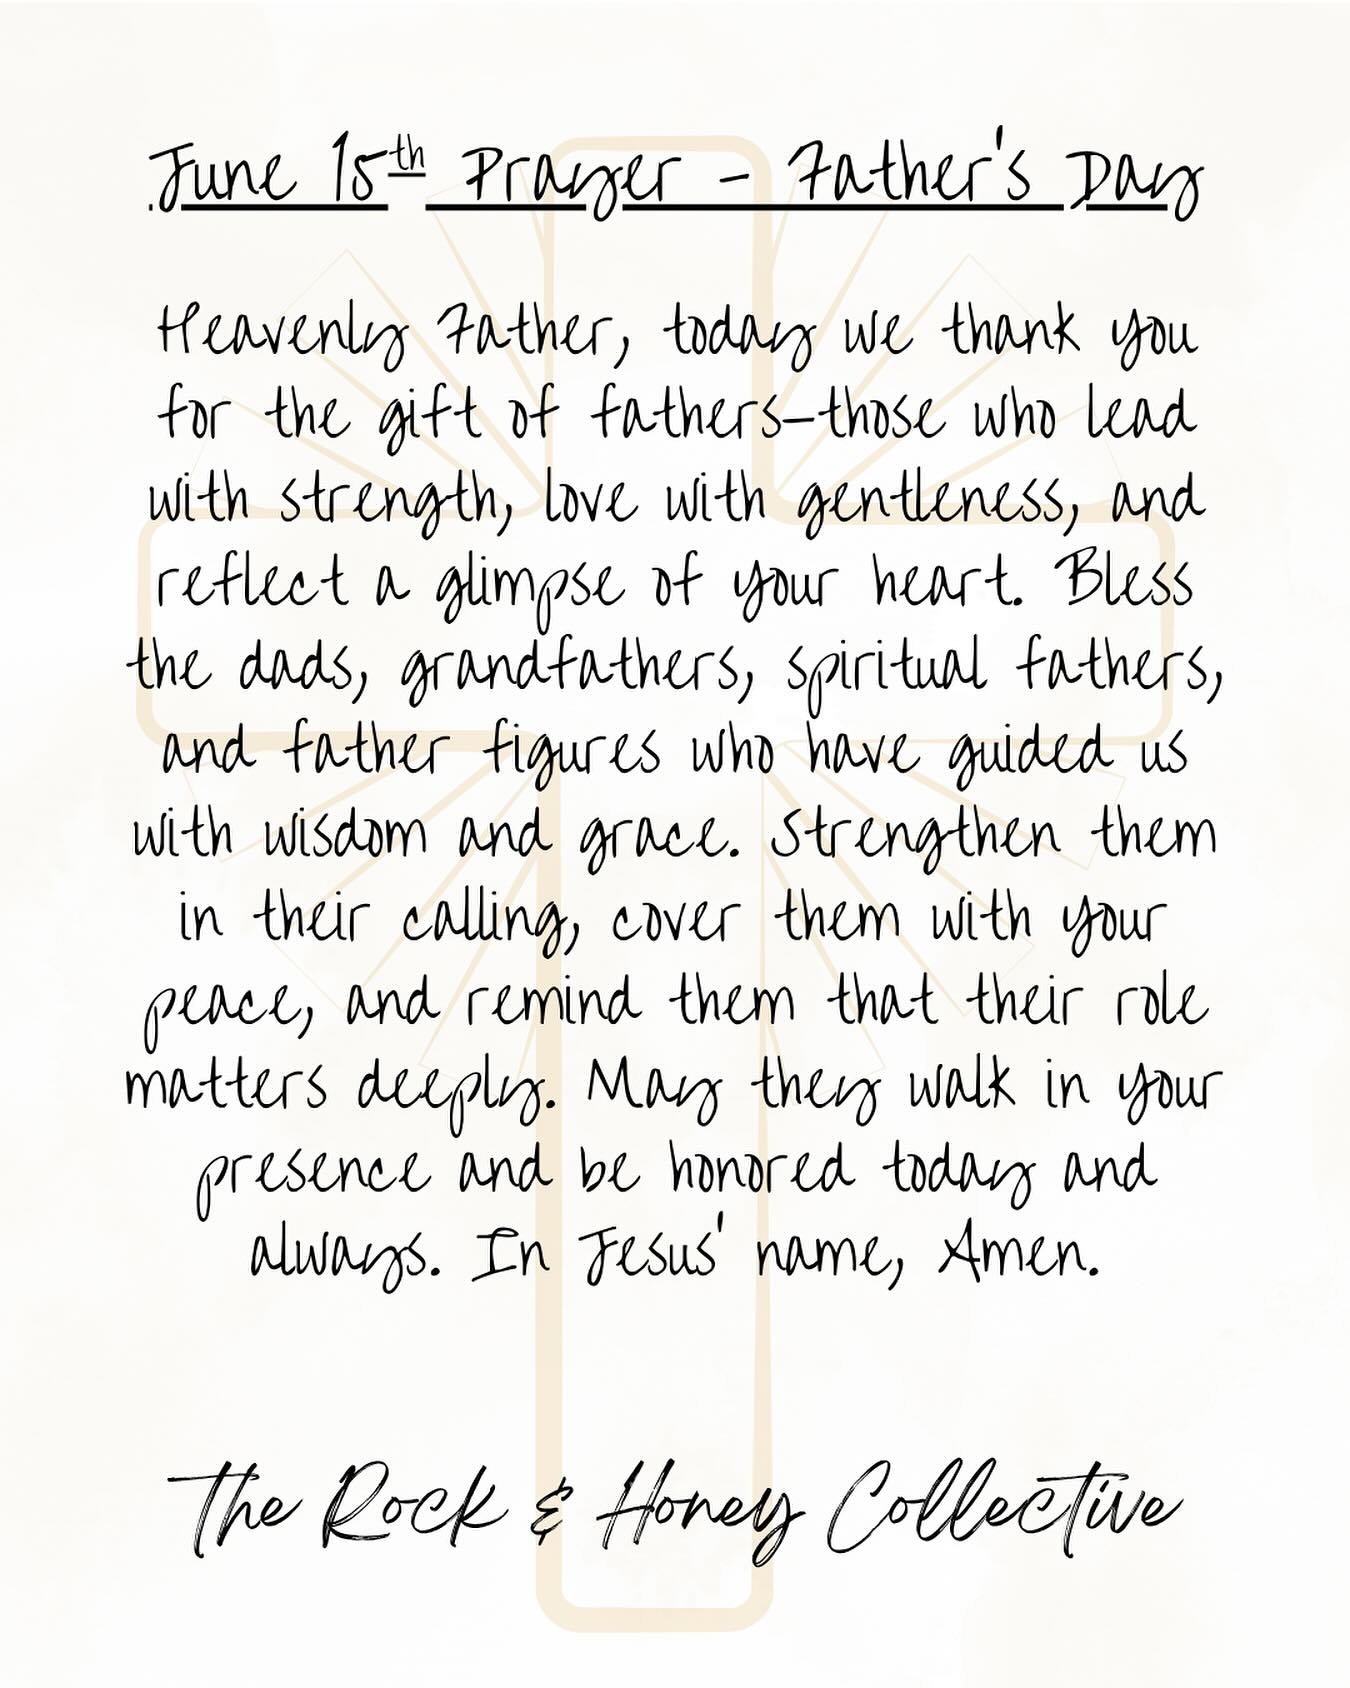 June 15th Prayer - Father's Day
Heavenly Father, today we thank you
for the gift of fathers—those who lead
with strength, love with gentleness, and
reflect a glimpse of your heart. Bless
the dads, grandfathers, spiritual fathers,
and father figures who have guided us
with wisdom and grace. Strengthen them
in their calling, cover them with your
peace, and remind them that their role
matters deeply. May they walk in your
presence and be honored today and
always. In Jesus' name, Amen.
The Rock & Honey Collective